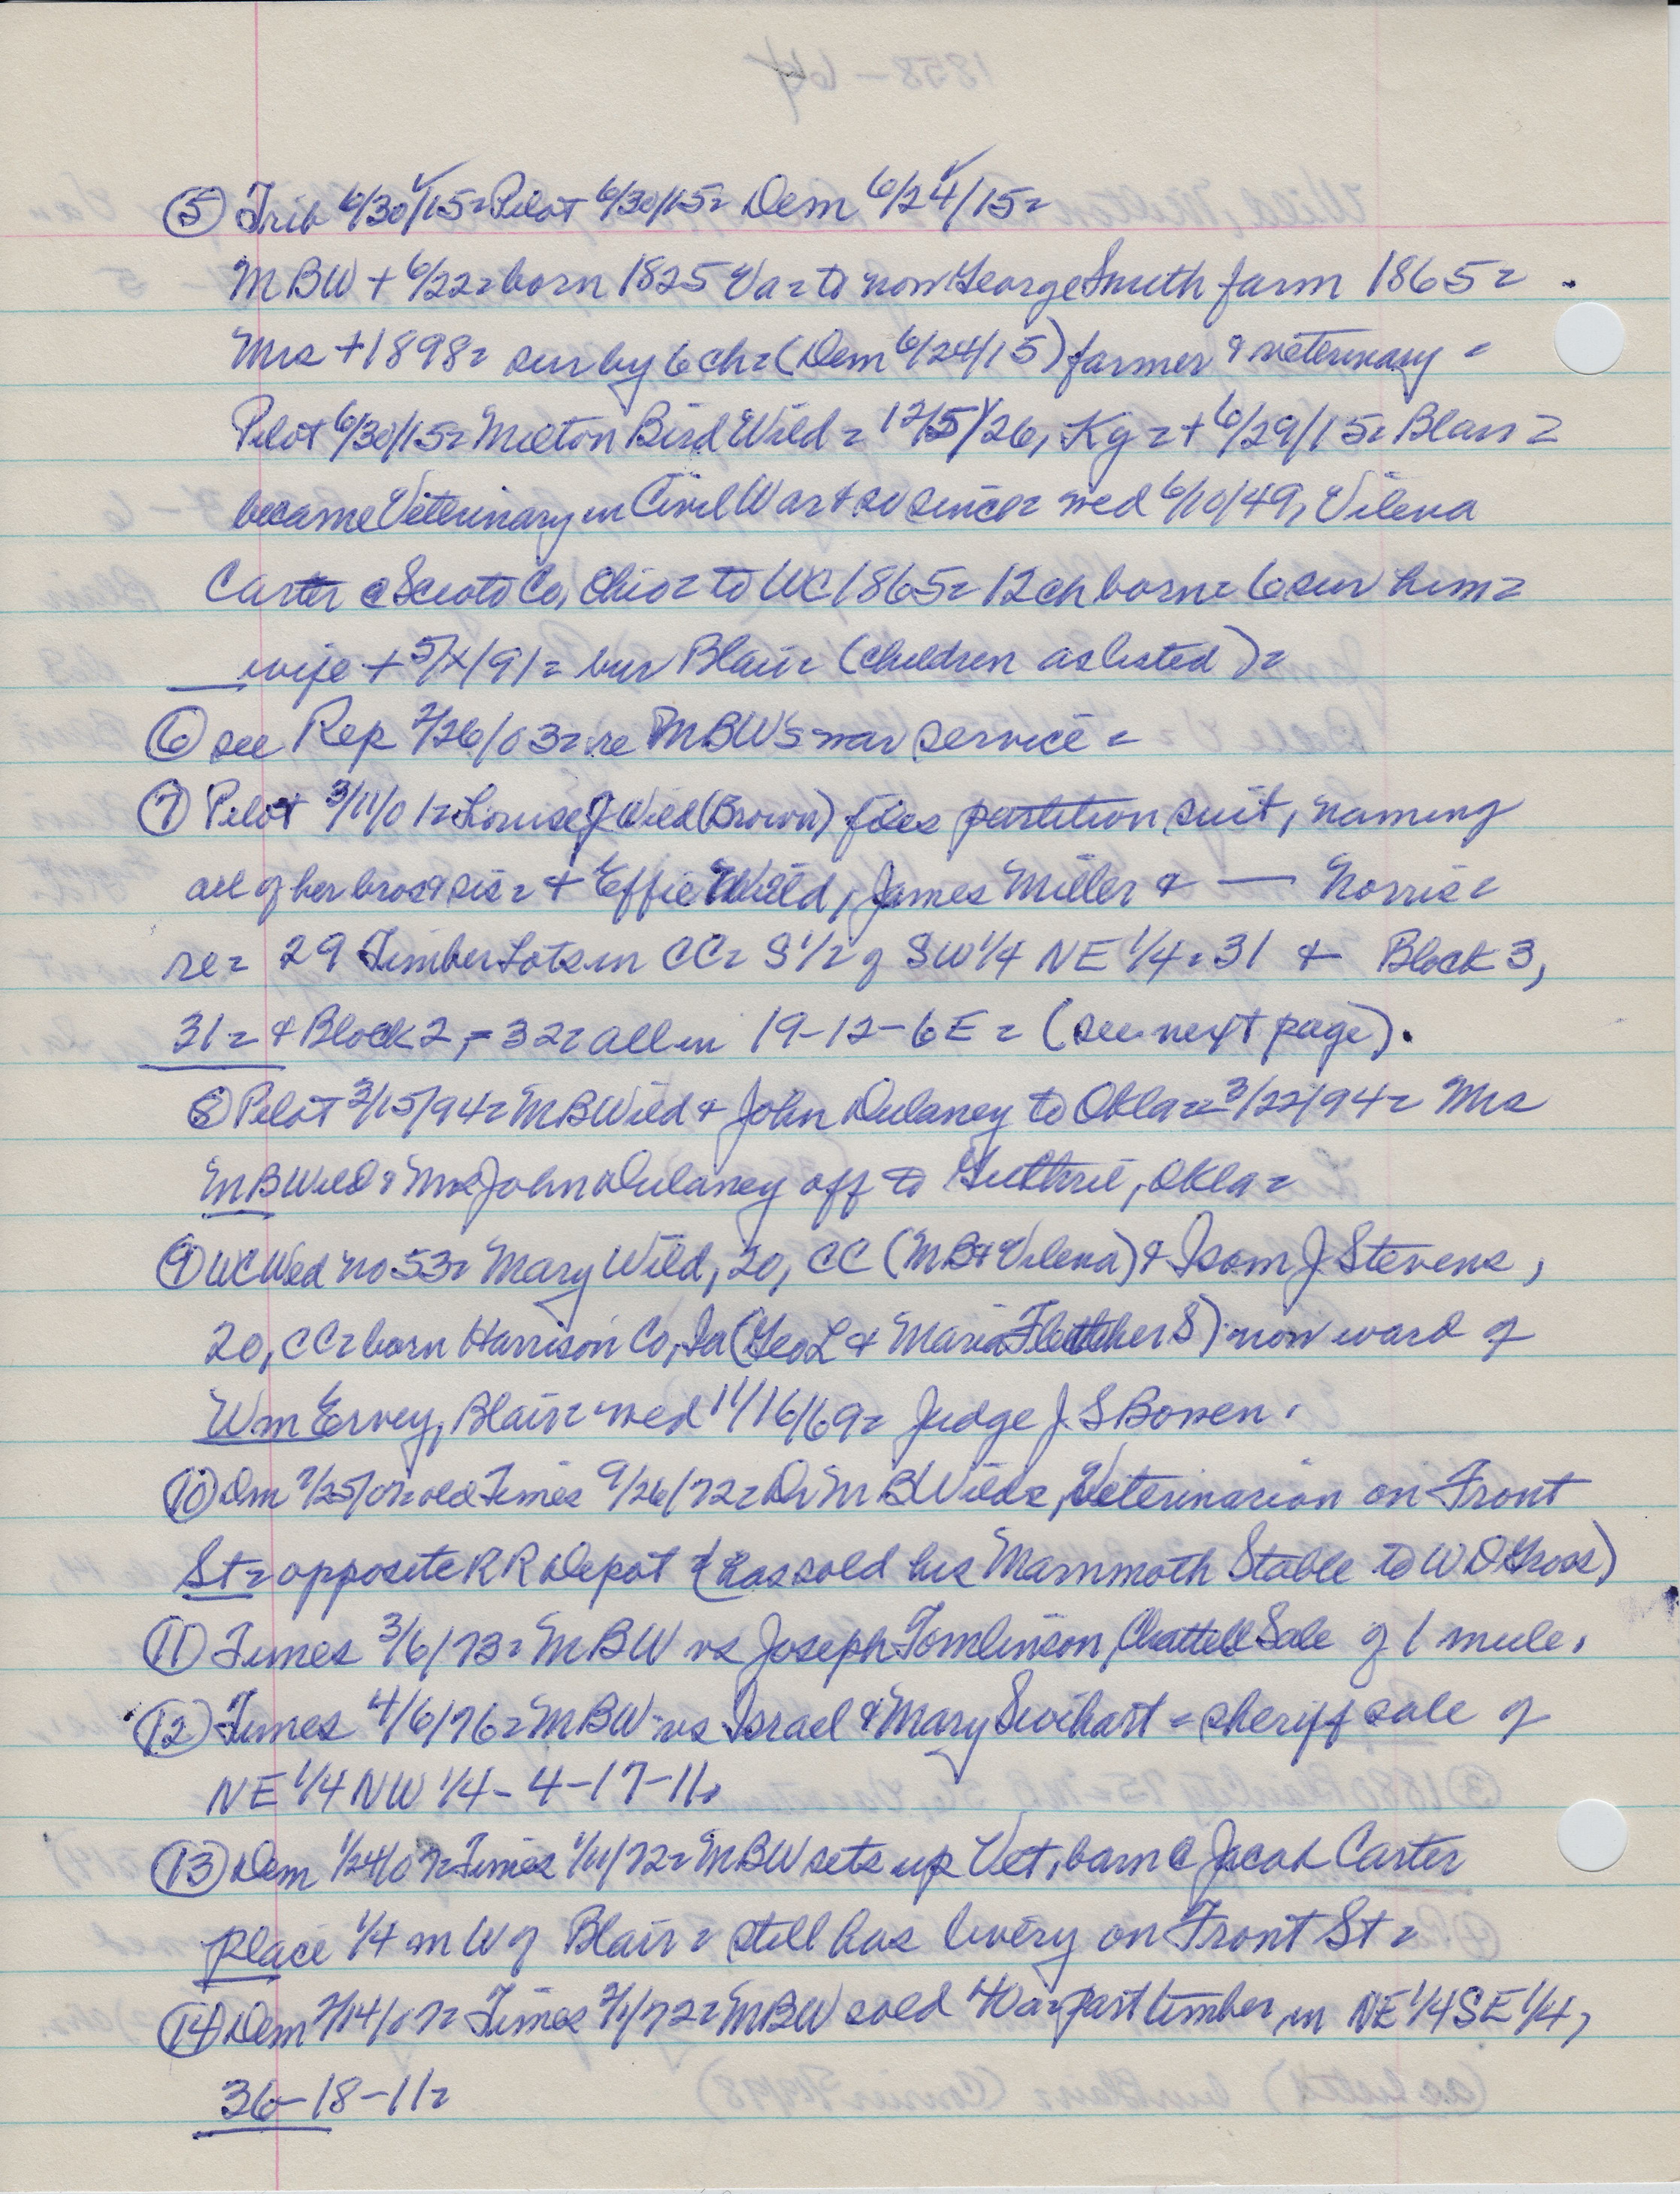 ⑤ Trib 6/30/15= Pilot 6/30/15= Dem 6/24/15=
MBW + 6/22= born 1825 Va= to now George Smith farm 1865=
Mrs +1898= sur by 6 ch= (Dem 6/24/15) farmer & veterinary =
Pilot 6/30/15= Milton Bird Wild = 12/5/26, Ky= + 6/29/15= Blair=
became Veterinary in Civil War & so since= wed 6/10/49, Vilena
Carter @ Scioto Co, Ohio= to WC 1865= 12 ch born= 6 sur him=
wife + 5/x/91= bur Blair= (children as listed)=
⑥ see Rep 2/26/03= re MBW's war service=
⑦ Pilot 3/11/01= Louise J Wild (Brown) files partition suit, naming
all of her bros & sis= + Effie Wild, James Miller & — Norris=
re= 29 Timber Lots in CC= S 1/2 of SW 1/4 NE 1/4= 31 & Block 3,
31= & Block 2,= 32= all in 19-12-6E= (see next page).
⑧ Pilot 3/15/94= MB Wild & John Dulaney to Okla= 3/22/94= Mrs
MB Wild & Mrs John Dulaney off to Guthrie, Okla=
⑨ WC Wed no 53= Mary Wild, 20, CC (MB & Vilena) & Isom J Stevens,
20, CC= born Harrison Co, Ia (Geo L & Maria Fletcher S) now ward of
Wm Ervey, Blair= wed 11/16/69= Judge J. S Bowen.
⑩ Dm 7/25/07= old Times 9/26/72= Dr M B Wilds, Veterinarian on Front
St= opposite RR Depot (has sold his Mammoth Stable to W D Gross)
⑪ Times 3/6/73= MBW vs Joseph Tomlinson, Chattell Sale of 1 mule.
⑫ Times 4/6/76= MBW vs Israel & Mary Swihart= sheriff sale of
NE 1/4 NW 1/4- 4-17-11.
⑬ Dem 1/24/07= Times 1/11/72= MBW sets up Vet, barn @ Jacob Carter
place 1/4 m W of Blair= still has livery on Front St=
⑭ Dem 2/14/07= Times 2/1/72= MBW sold 40 a= part timber, in NE 1/4 SE 1/4,
36-18-11=